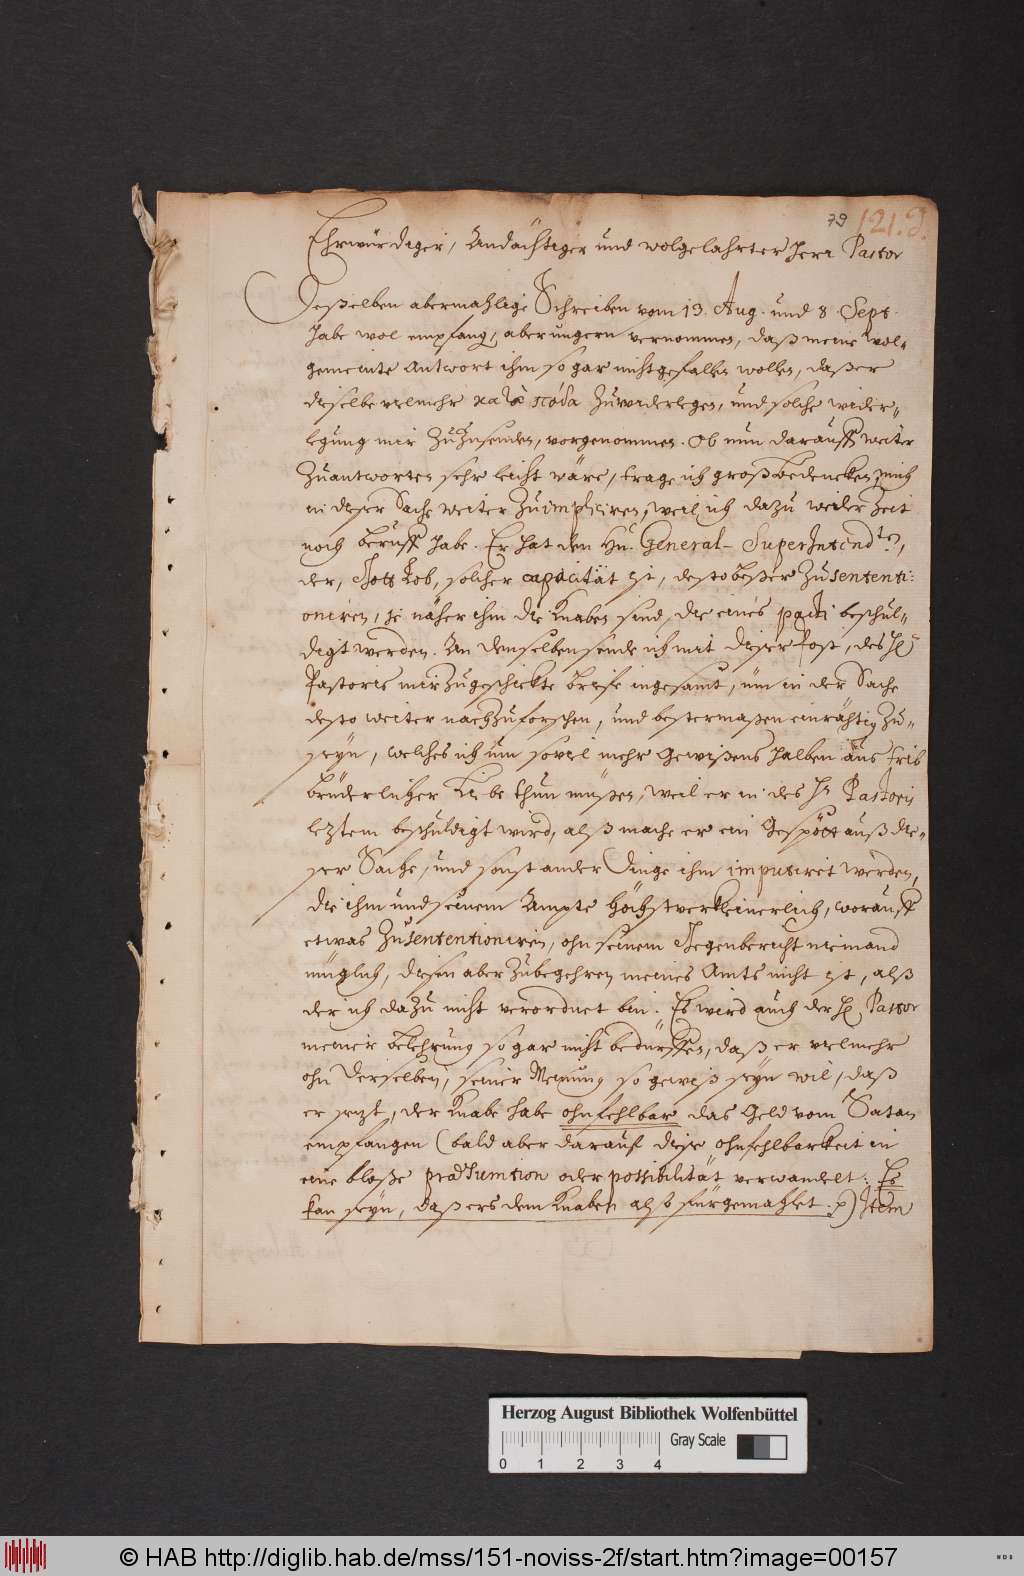 79 121.
Ehrwürdiger, Andächtiger und wolgelahrter Herr Pastor
Deßelben abermahlige Schreiben vom 13. Aug. und 8. Sept.
habe wol empfang, aber ungern vernommen, daß meine wol-
gemeinte Antwort ihm so gar nicht gefallen wollen, daß er
dieselbe vielmehr κατὰ πόδα zuwiderlegen, und solche wider-
legung mir zuzusenden, vorgenommen. Ob nun darauff weiter
zuantworten sehr leicht wäre, trage ich groß bedencken, mich
in dieser Sache weiter zuimpliciren, weil ich dazu weder Zeit
noch beruff habe. Er hat den Hn. General-Superintendten,
der, Gott Lob, solcher capacität ist, desto beßer zu sententi-
oniren, je näher ihm die Knaben sind, die eines pacti beschül-
digt werden. An demselben sende ich mit dieser Post, des H
Pastoris mir zugeschickte briefe ingesamt, üm in der Sache
desto weiter nachzuforschen, und bestermaßen einrähtig zu-
seyn, welches ich um soviel mehr Gewißens halben aus
brüderlicher Liebe thun müßen, weil er in des Hr Pastoris
leztem beschuldigt wird, alß mache er ein Gespött auß die-
ser Sache, und sonst ander Dinge ihm imputiret werden,
die ihm und seinem Ampte höchstverkleinerlich, worauff
etwas zusententioniren, ohn seinem Gegenbericht niemand
müglich, diesen aber zubegehren meines Amts nicht ist, alß
der ich dazu nicht verordnet bin. Es wird auch der H Pastor
meiner belehrung so gar nicht bedürffen, daß er vielmehr
ohn derselben, seiner Meinung so gewiß seyn wil, daß
er sezt, der Knabe habe ohnfehlbar das Geld vom Satan
empfangen (bald aber darauf diese ohnfehlbarkeit in
eine bloße præsumtion oder possibilität verwandelt: Es
kan seyn, daß ers dem Knaben alß fürgemahlet.) Item
Herzog August Bibliothek Wolfenbüttel
Gray Scale
0 1 2 3 4
© HAB http://diglib.hab.de/mss/151-noviss-2f/start.htm?image=00157